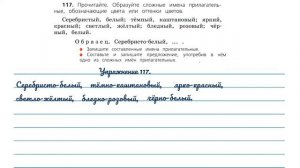 117. Прочитайте. Образуйте сложные имена прилагатель-
ные, обозначающие цвета или оттенки цветов.
Серебристый, белый; тёмный, каштановый; яркий,
красный; светлый, жёлтый; бледный, розовый; чёр-
ный, белый.
Образец. Серебристо-белый, ... .
Запишите составленные имена прилагательные.
Составьте и запишите предложение, употребив в нём
одно из сложных имён прилагательных.
Упражнение 117.
Серебристо-белый, тёмно-каштановый, ярко-красный,
светло-жёлтый, бледно-розовый, чёрно-белый.